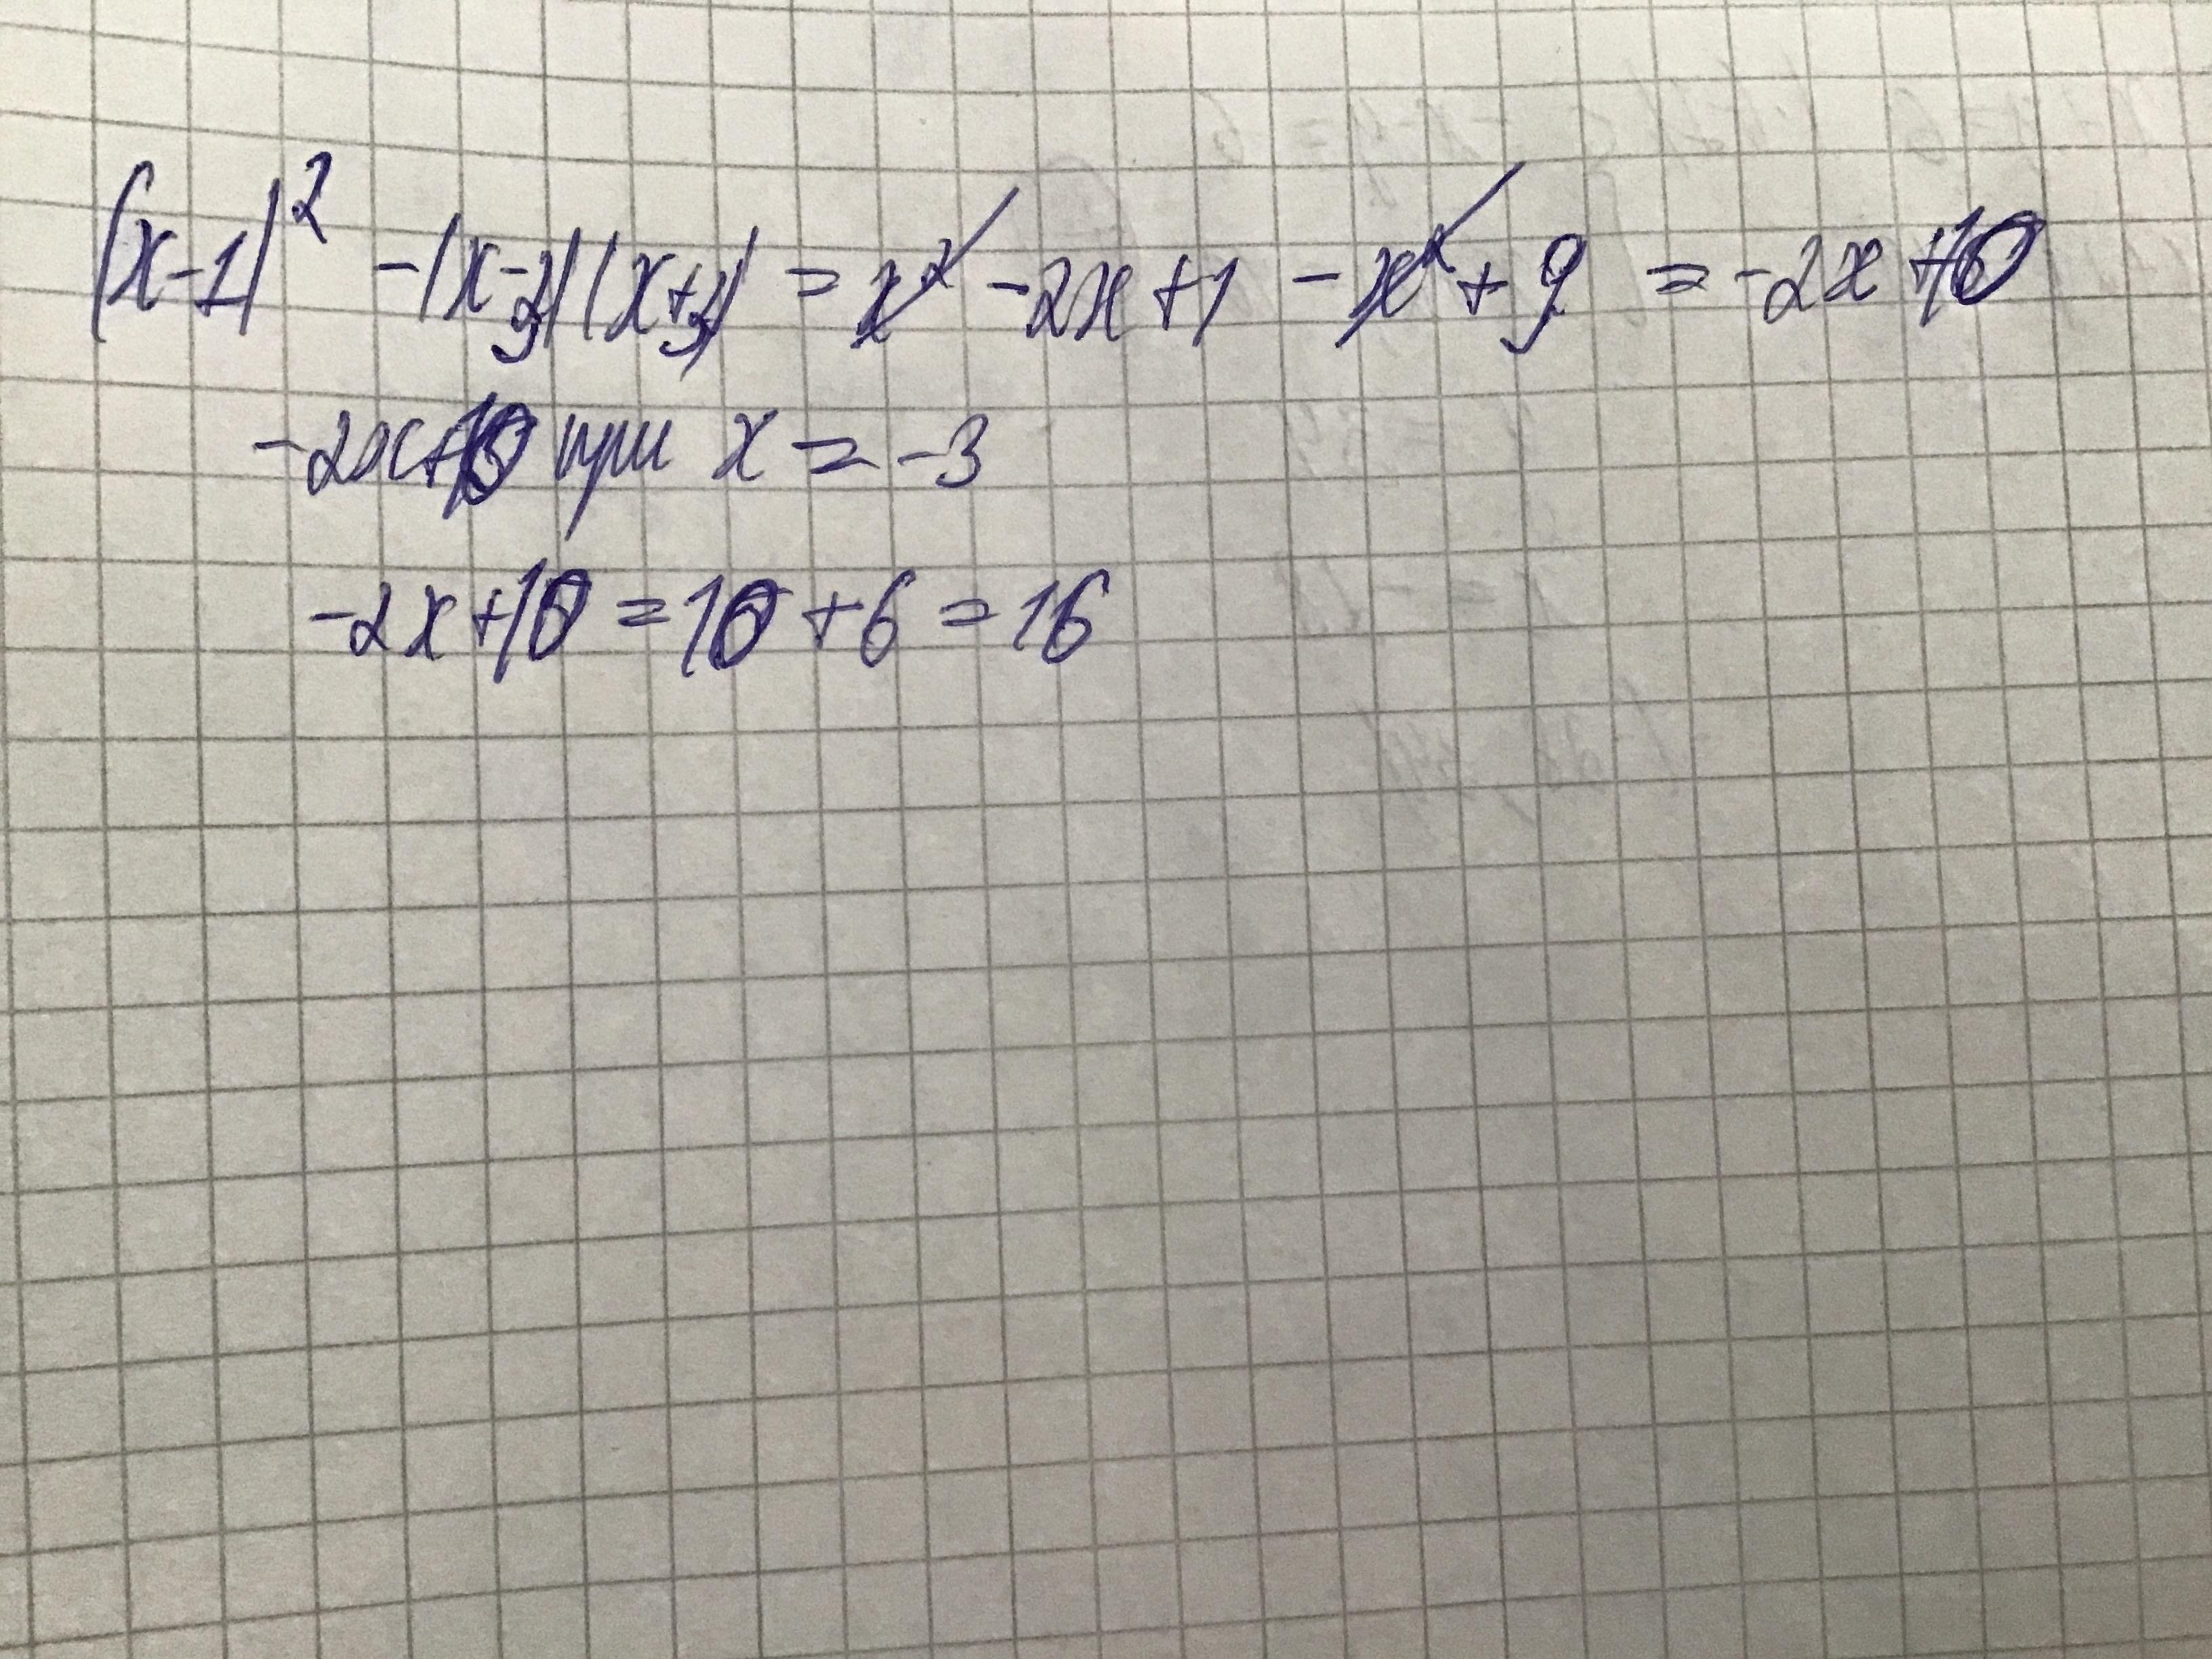 (x-1)² -(x-3)(x+3) = x² -2x+1 -x² +9 = -2x+10
-2x+10 при x = -3
-2x+10 = 10 +6 = 16